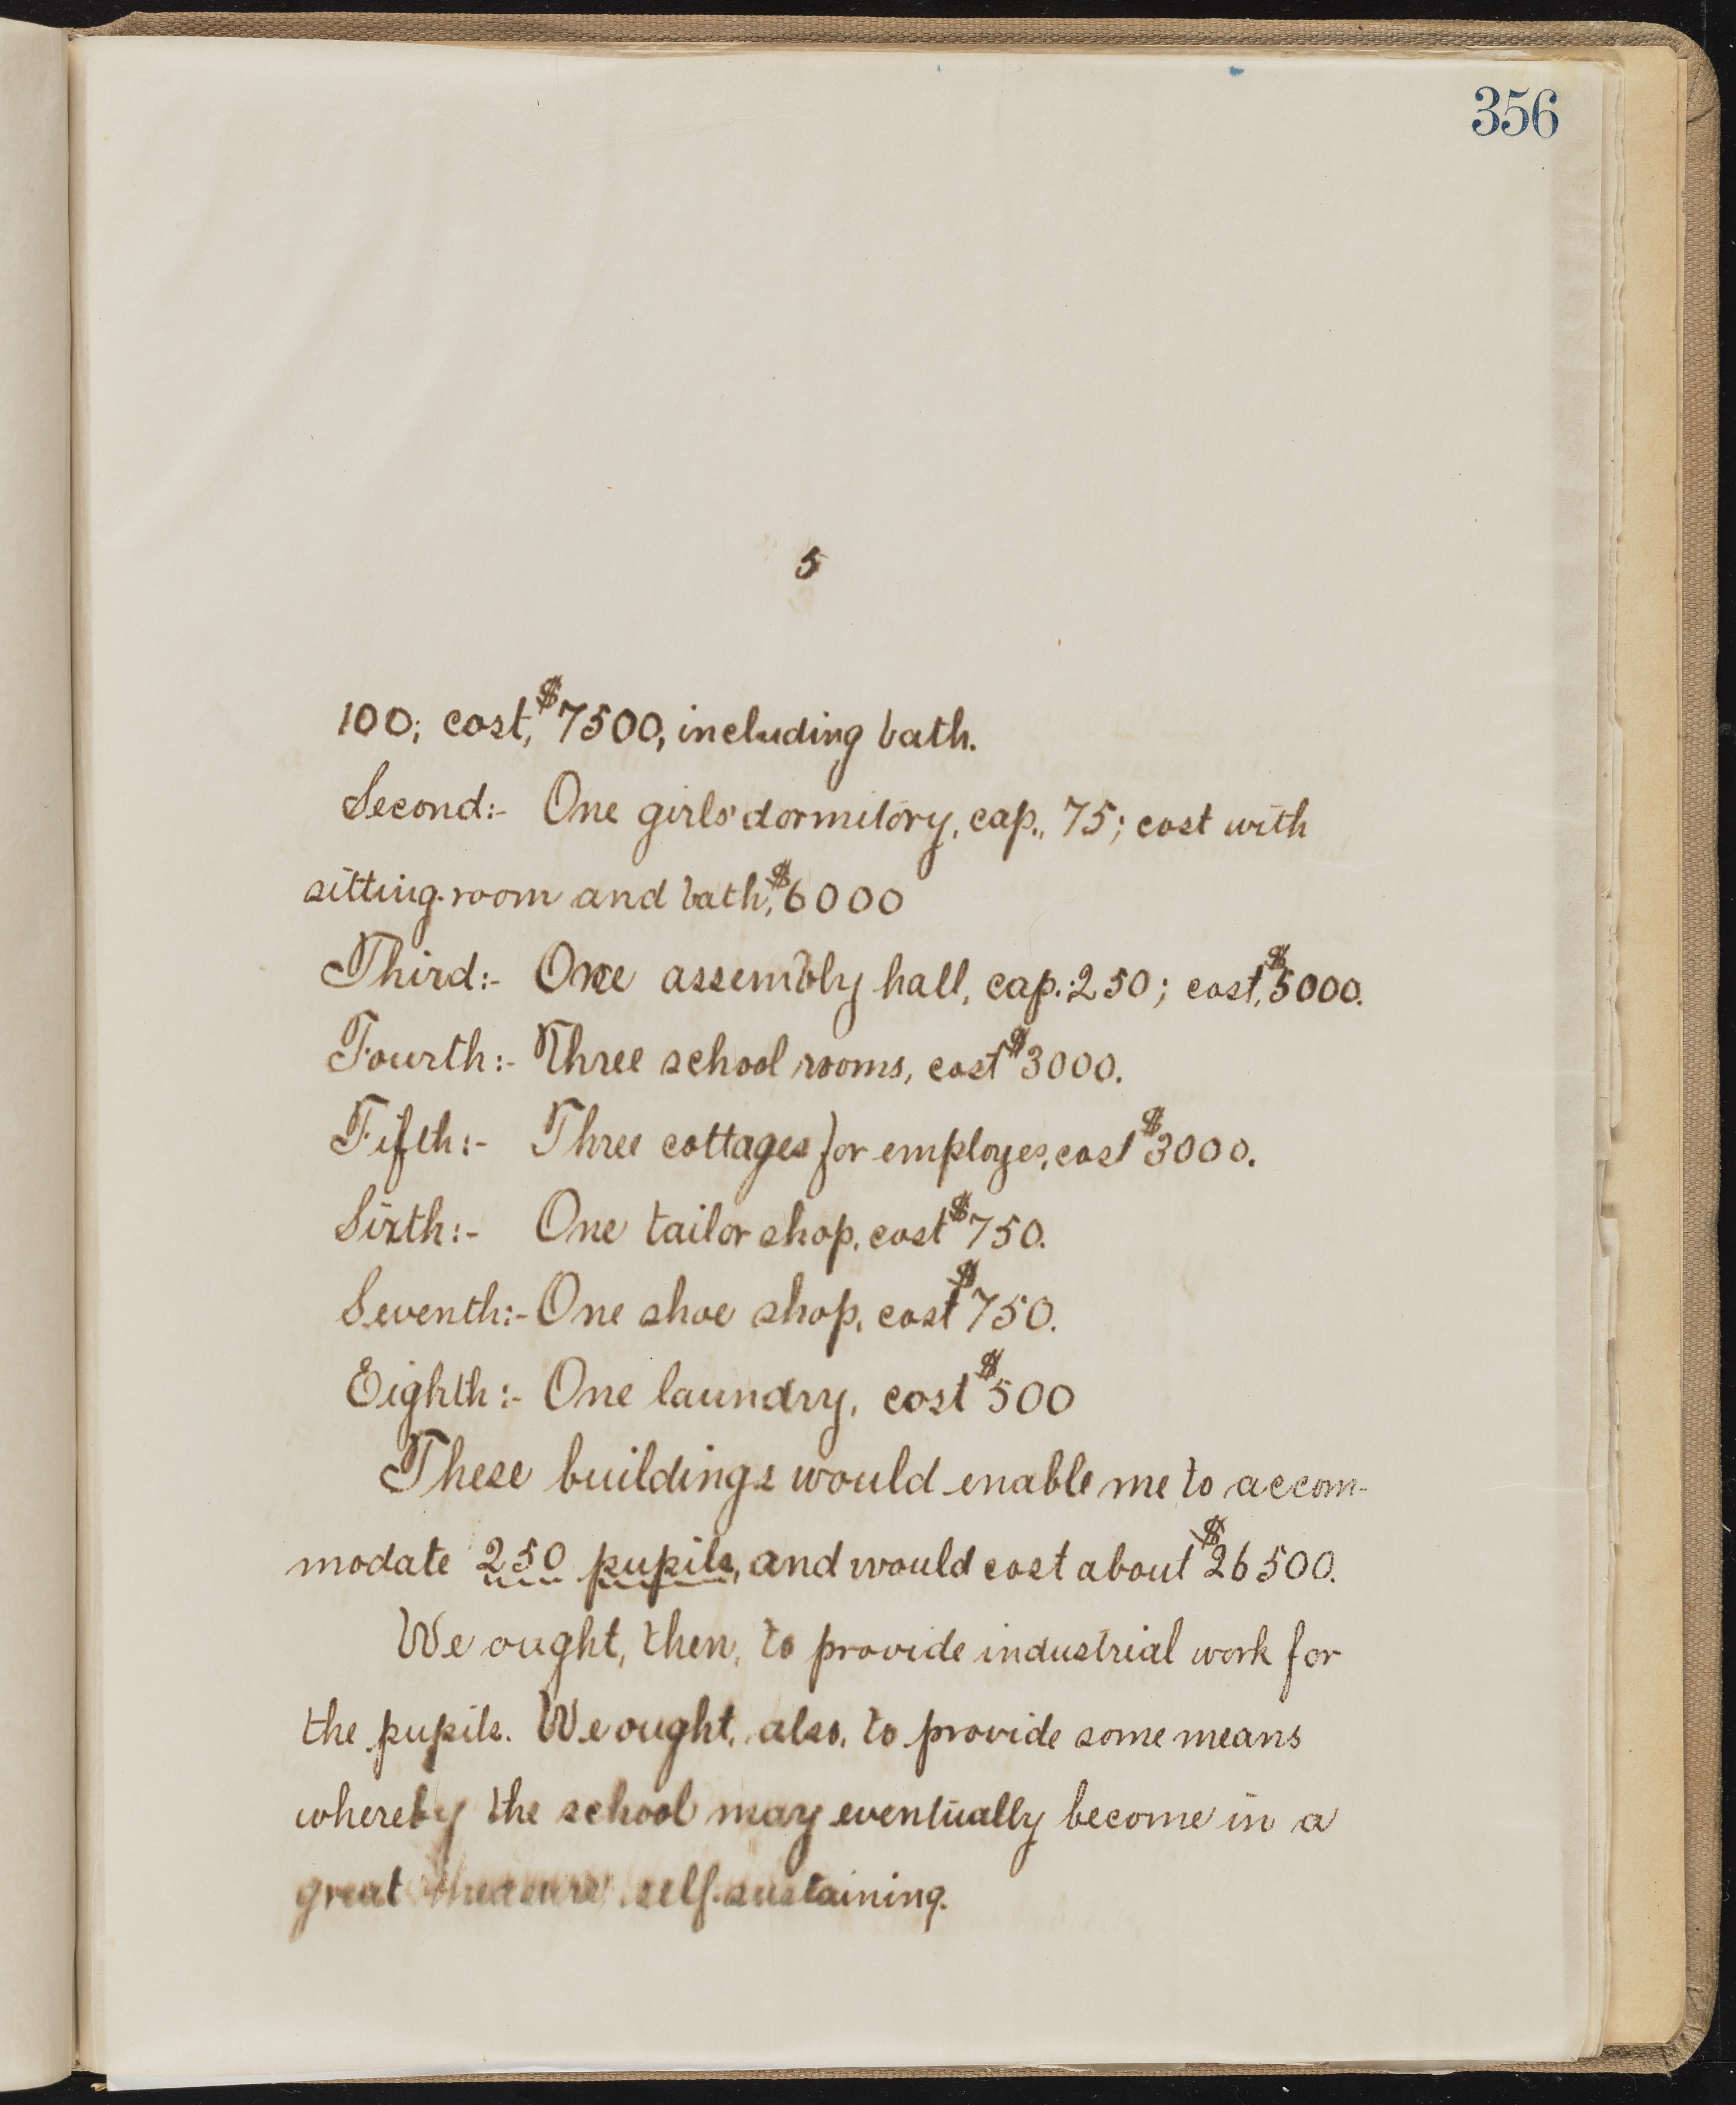 356
5
100; cost, $7500, including bath.
Second:- One girls' dormitory, cap., 75; cost with
sitting-room and bath, $6000
Third:- One assembly hall, cap.: 250; cost, $5000.
Fourth:- Three school rooms, cost $3000.
Fifth:- Three cottages for employes, cost $3000.
Sixth:- One tailor shop, cost $750.
Seventh:- One shoe shop, cost $750.
Eighth:- One laundry, cost $500
These buildings would enable me to accom-
modate 250 pupils, and would cost about $26500.
We ought, then, to provide industrial work for
the pupils. We ought, also, to provide some means
whereby the school may eventually become in a
great measure self-sustaining.